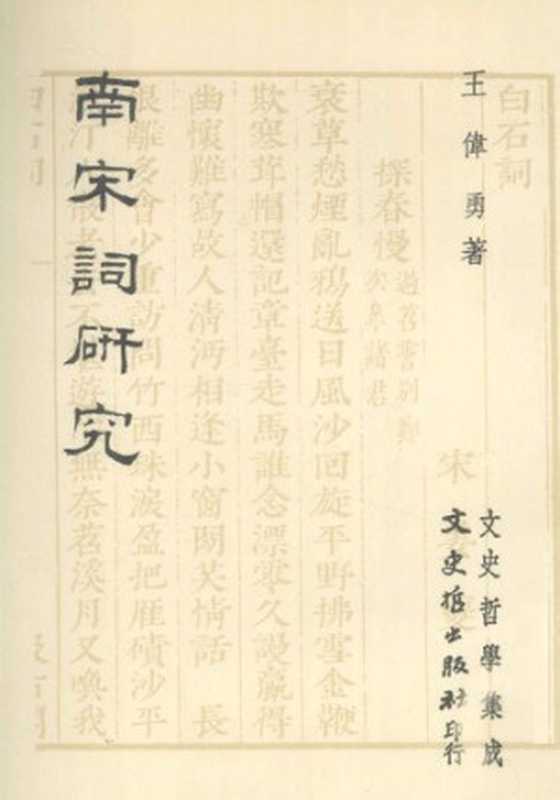 白石詞
王偉勇著
宋
文史哲學集成
文史哲出版社印行
探春慢
過苕霅別鄭
次皋諸君
衰草愁煙亂鴉送日風沙回旋平野拂雪金鞭
欺寒茸帽還記章臺走馬誰念漂零久謾贏得
幽懷難寫故人清沔相逢小窗閑共情話 長
恨離多會少重訪問竹西珠淚盈把雁磧沙平
南宋詞研究
汀 散老 不 遊 無奈苕溪月又喚我